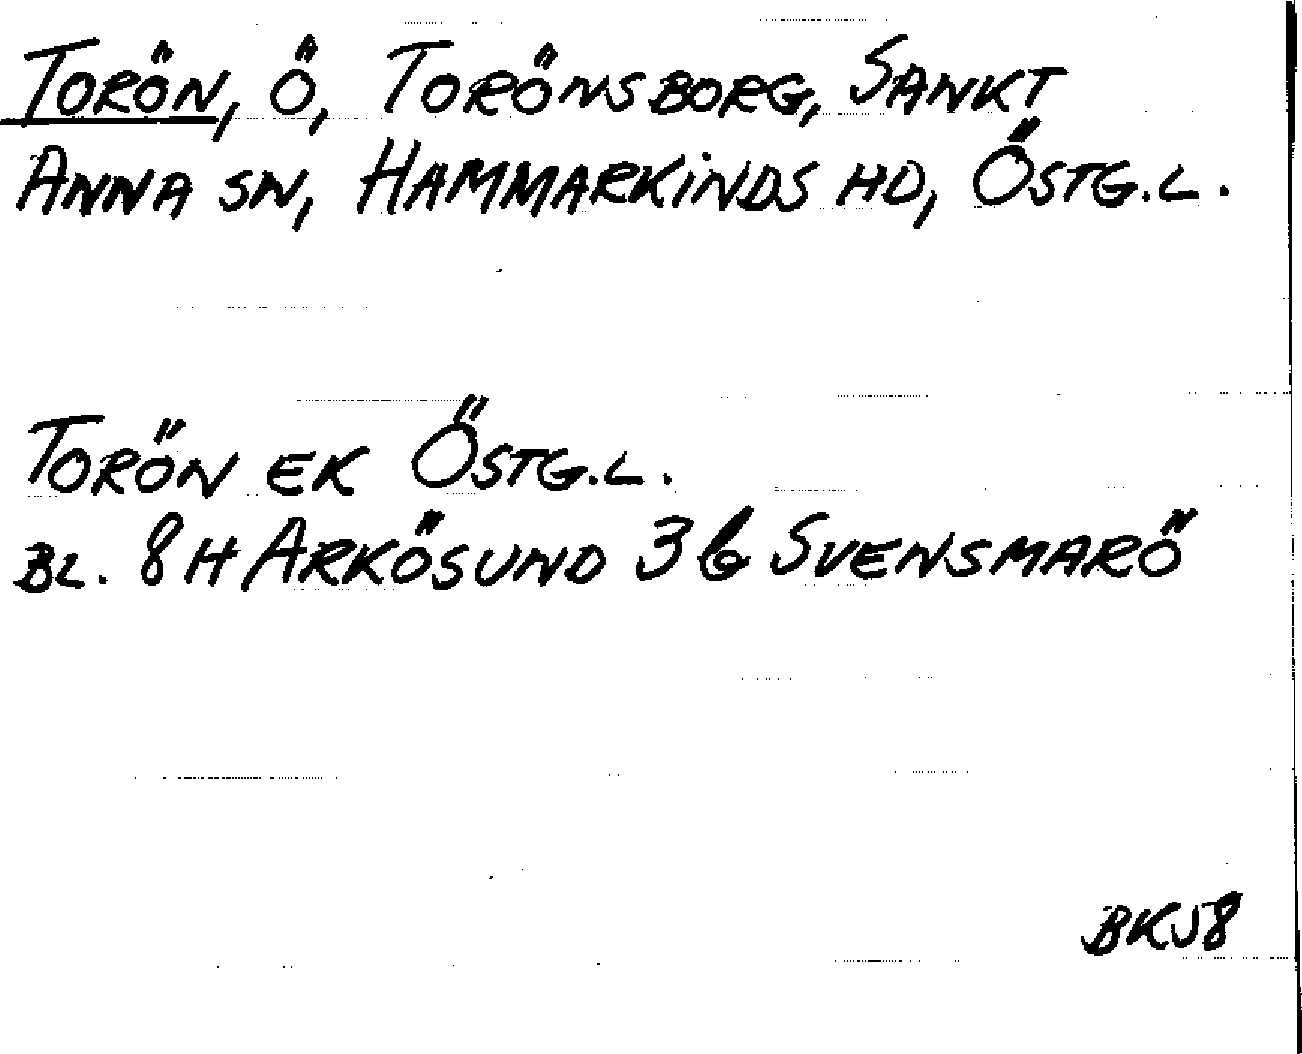 TORÖN, Ö, TORÖNSBORG, SANKT
ANNA SN, HAMMARKINDS HD, ÖSTG.L.
TORÖN EK ÖSTG.L.
BL. 8H ARKÖSUND 3b SVENSMARÖ
BKJ8